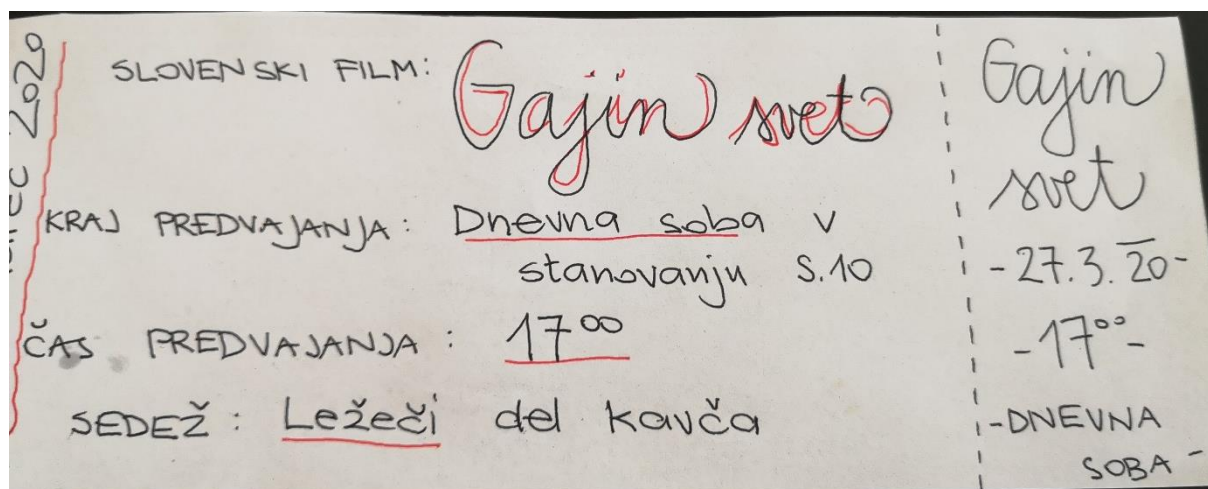 2020
SLOVENSKI FILM: Gajin svet
KRAJ PREDVAJANJA: Dnevna soba v
stanovanju S.10
ČAS PREDVAJANJA: 17⁰⁰
SEDEŽ: Ležeči del kavča
Gajin
svet
-27.3.20-
-17⁰⁰-
-DNEVNA
SOBA-